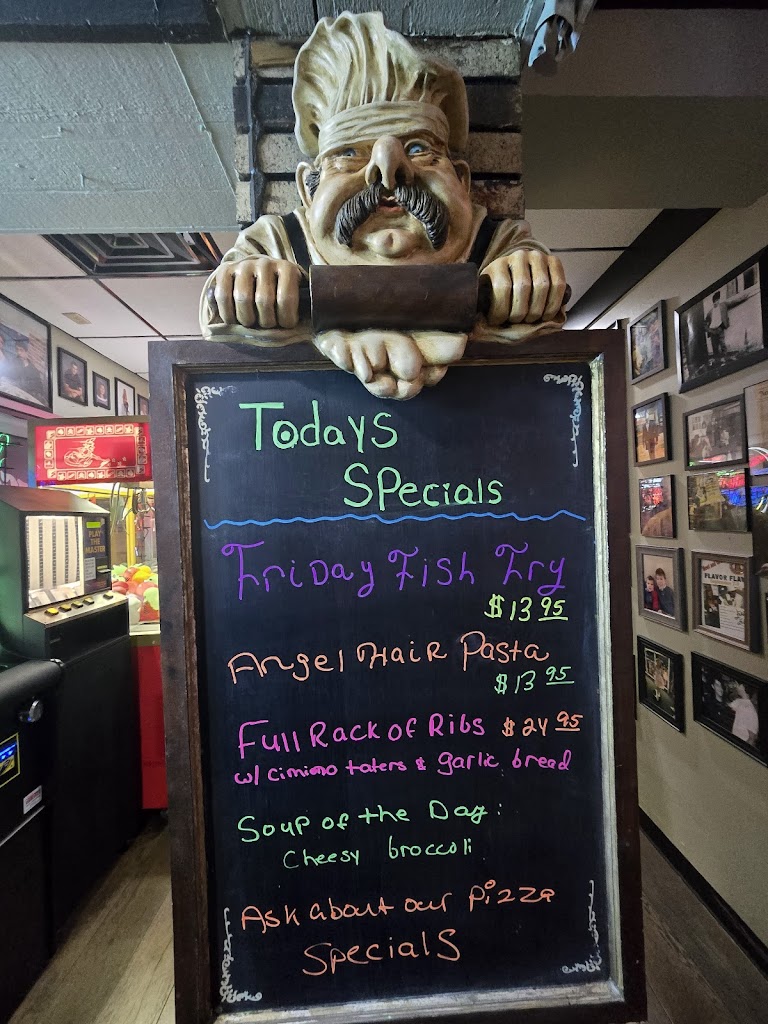 Todays
Specials
Friday Fish Fry
$13 95
Angel Hair Pasta
$13 95
Full Rack of Ribs $24 95
w/ cimino taters & garlic bread
Soup of the Day:
Cheesy broccoli
Ask about our pizza
Specials
PLAY
THE
MASTER
FLAVOR FLAV